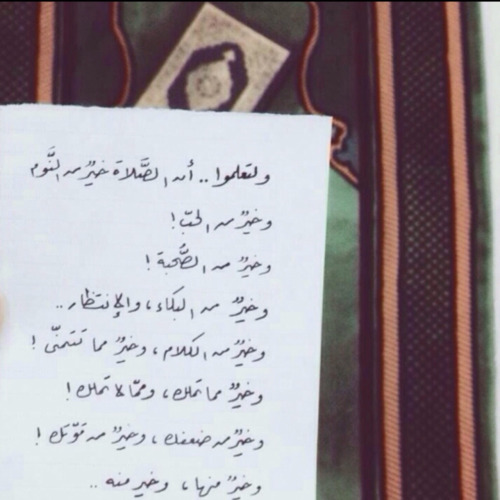 ولتعلموا .. أن الصَّلاة خيرٌ من النَّوم
وخيرٌ من الحبّ !
وخيرٌ من الصُّحبة !
وخيرٌ من البكاء ، والإنتظار ..
وخيرٌ من الكلام ، وخيرٌ مما تتمنّى !
وخيرٌ مما تملك ، وممّا لا تملك !
وخيرٌ من ضعفك ، وخيرٌ من قوّتك !
وخيرٌ منها ، وخير منه ..